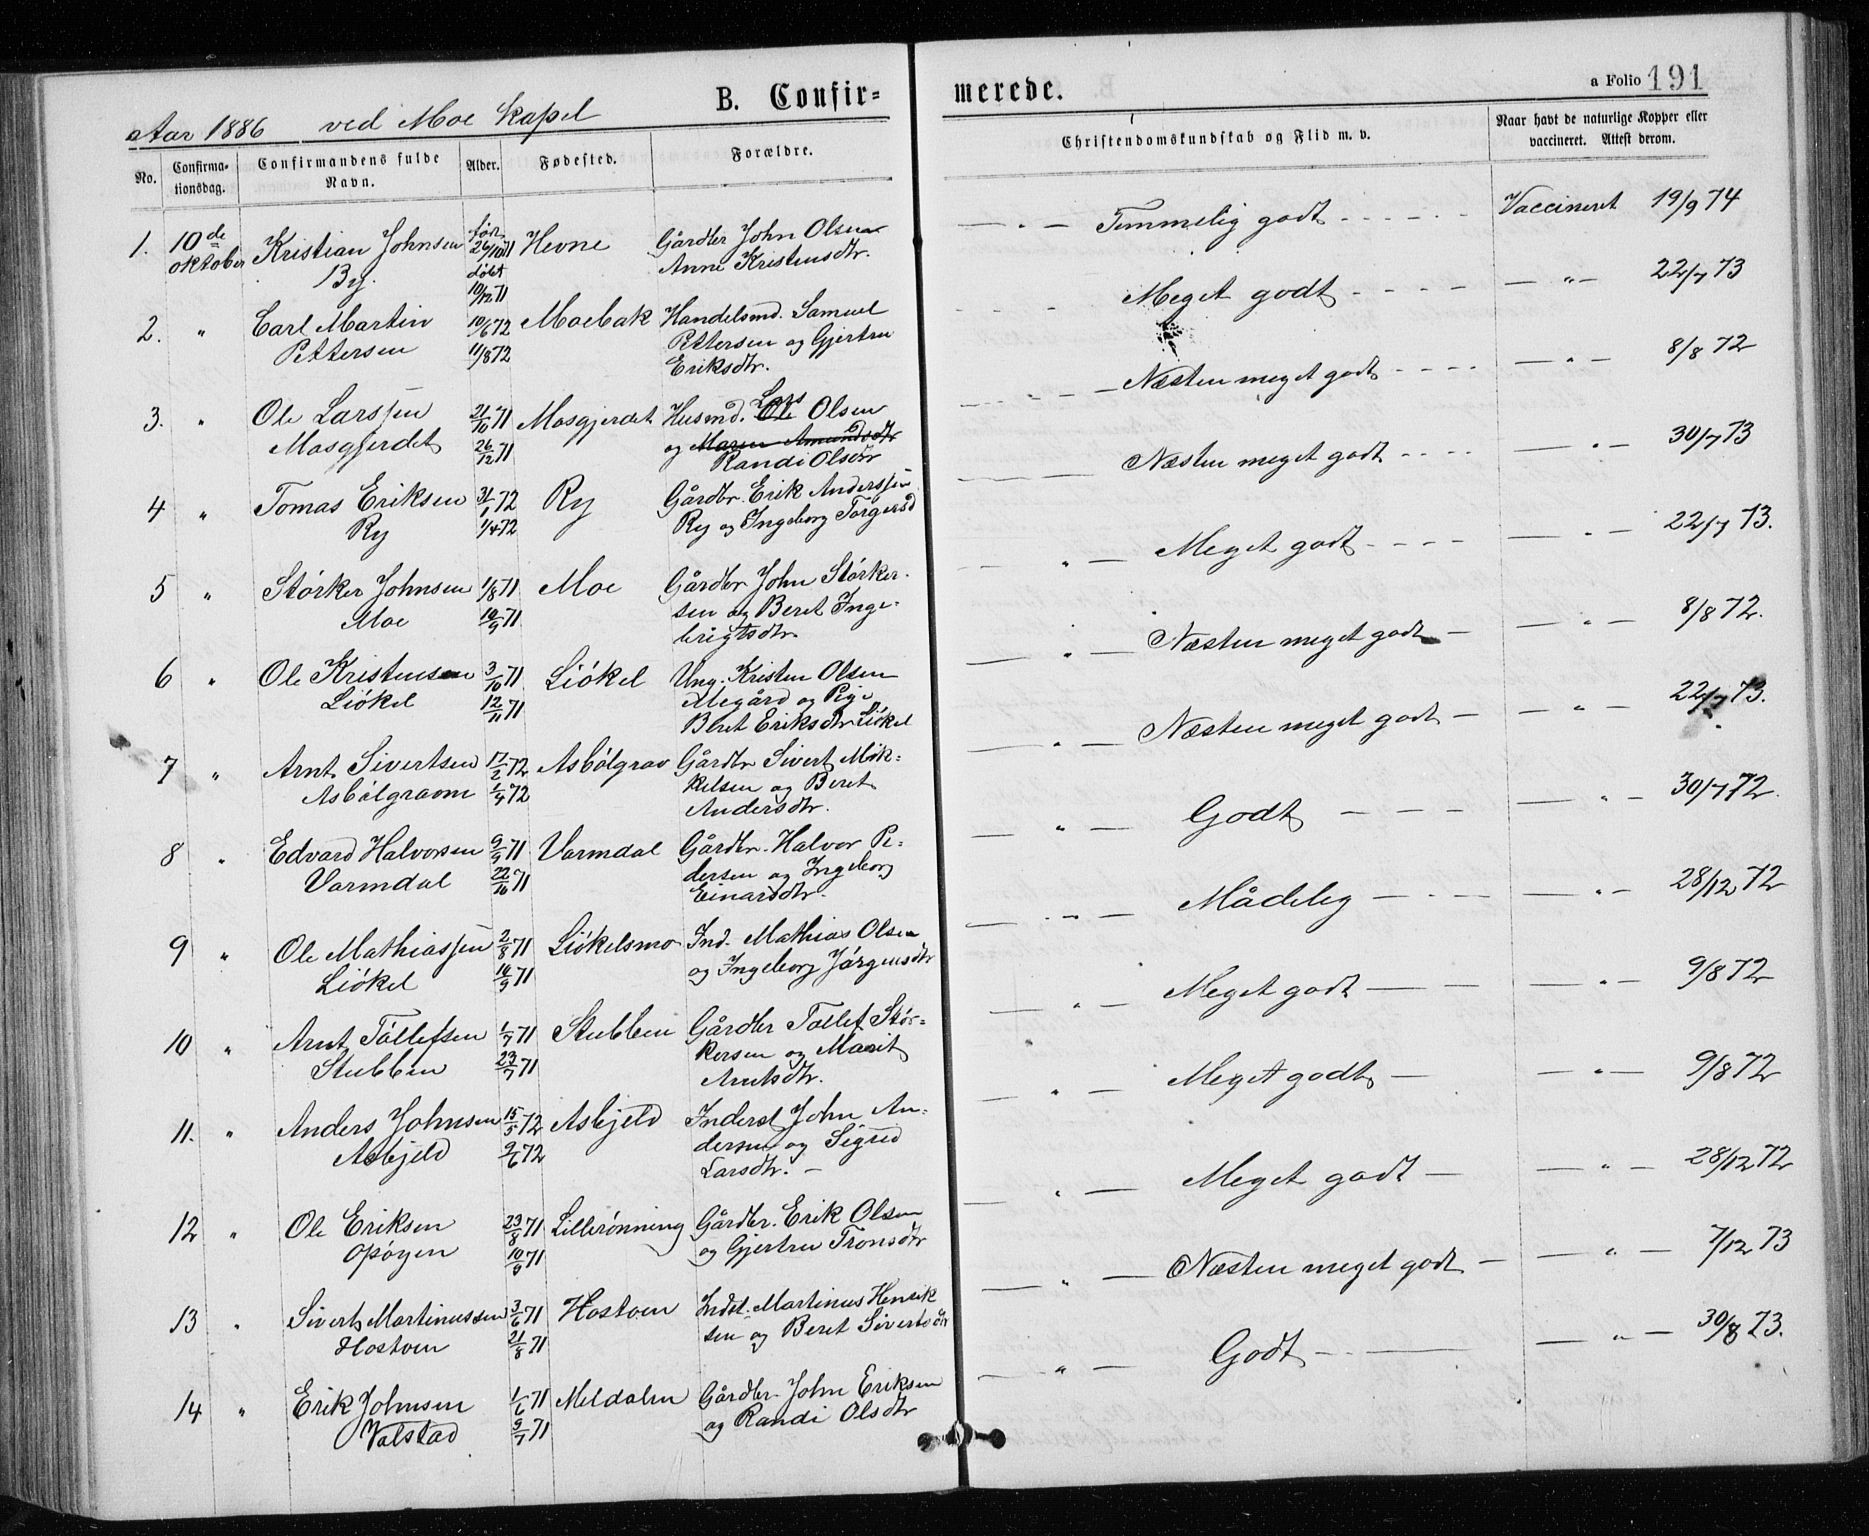 B. Confirmerede.
a Folio 191
Aar 1886 ved Moe Kapel
No. Confirmationsdag. Confirmandens fulde Navn. Alder. Fødested. Forældre. Christendomskundskab og Flid m. v. Naar havt de naturlige Kopper eller vaccineret. Attest derom.
1. 10de Kristian Johnsen fød 26/10 71 Hevne Gårdbr John Olsen Temmelig godt Vaccineret 19/9 74
oktober By. døbt 10/12 71 Anne Kristensdtr.
2. " Carl Martin 10/6 72 Moebak Handelsmd. Samuel Meget godt " 22/7 73
Pettersen 11/8 72 Pettersen og Gjertru
Eriksdtr.
3. " Ole Larssen 21/10 71 Mosgjerdet Husmd. Ole Lars Olsen Næsten meget godt " 8/8 72
Mosgjerdet 26/12 71 og Maren Amundsdtr
Randi Olsdtr
4 " Tomas Eriksen 31/1 72 Ry Gårdbr. Erik Anderssen Næsten meget godt " 30/7 73
Ry 1/4 72 Ry og Ingeborg Torgersd
5 " Størker Johnsen 1/8 71 Moe Gårdbr John Størker- Meget godt " 22/7 73.
Moe 10/9 71 sen og Beret Inge-
brigtsdtr.
6 " Ole Kristensen 3/10 71 Liøkel Ung. Kristen Olsen Næsten meget godt " 8/8 72.
Liøkel 12/11 71 Megård og Pige
Beret Eriksdtr Liøkel
7 " Arnt Sivertsen 17/2 72 Asbølgrav Gårdbr Sivert Mik- Næsten meget godt " 22/7 73.
Asbølgravm 1/4 72 kelsen og Beret
Andersdtr.
8 " Edvard Halvorsen 9/9 71 Varmdal Gårdbr. Halvor Pe- Godt " 30/7 72.
Varmdal 22/10 71 dersen og Ingeborg
Einarsdtr.
9 " Ole Mathiassen 2/8 71 Liøkelsmo Ind. Mathias Olsen Mådelig " 28/12 72
Liøkel 10/9 71 og Ingeborg Jørgensdtr
10 " Arnt Tøllefsen 1/7 71 Stubben Gårdbr Tollef Stør- Meget godt " 9/8 72
Stubben 23/7 71 kersen og Marit
Arntsdtr.
11. " Anders Johnsen 15/5 72 Asbjeld Inderst John An- Meget godt " 9/8 72
Asbjeld 9/6 72 dersen og Sigrid
Larsdtr. —
12 " Ole Eriksen 23/8 71 Lillerønning Gårdbr. Erik Olsen Meget godt " 28/12 72
Opøyen 10/9 71 og Gjertru Tronsdtr
13 " Sivert Martinussen 3/6 71 Hostoen Indst. Martinus Henrik Næsten meget godt " 7/12 73
Hostoen 21/8 71 sen og Beret Sivertsdtr
14 " Erik Johnsen 1/6 71 Meldalen Gårdbr. John Eriksen Godt " 30/8 73.
Valstad 9/7 71 og Randi Olsdtr